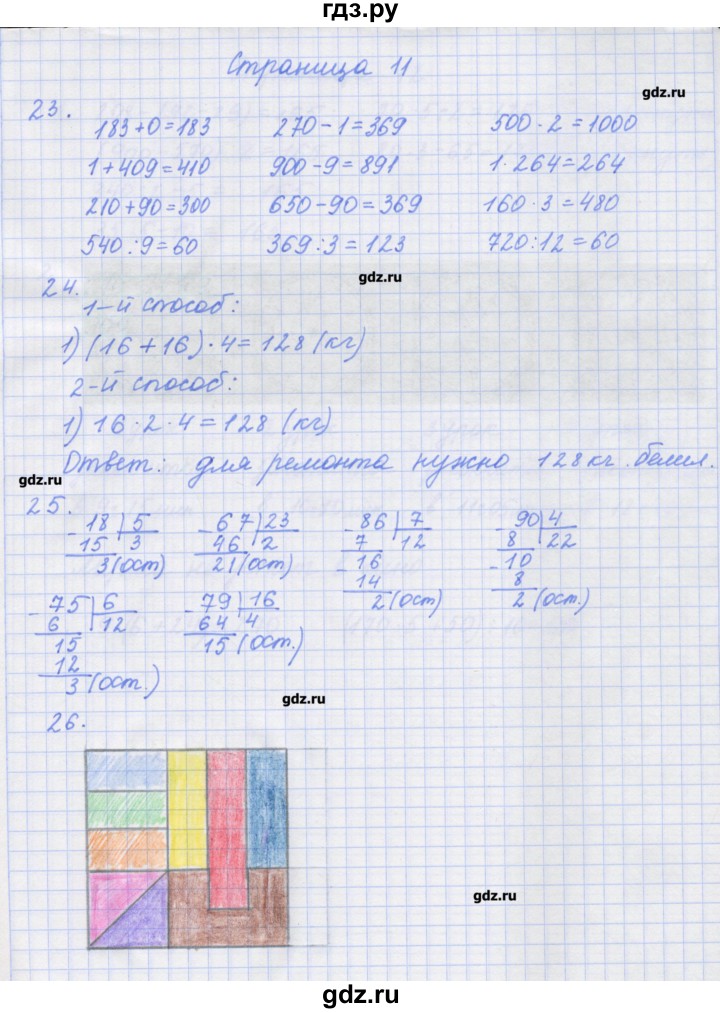 гдз.ру
Страница 11
gdz.ru
23.
183+0=183 270-1=369 500·2=1000
1+409=410 900-9=891 1·264=264
210+90=300 650-90=369 160·3=480
540:9=60 369:3=123 720:12=60
gdz.ru
24.
1-й способ:
1) (16+16)·4=128 (кг)
2-й способ:
1) 16·2·4=128 (кг)
Ответ: для ремонта нужно 128 кг белил.
gdz.ru
25.
18 5 67 23 86 7 90 4
15 3 46 2 7 12 8 22
3(ост) 21(ост) 16 10
14 8
2(ост) 2(ост.)
75 6 79 16
6 12 64 4
15 15(ост.)
12
3(ост.)
gdz.ru
26.
gdz.ru
gdz.ru